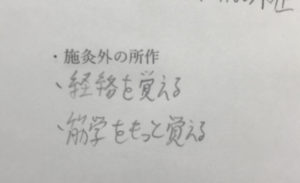 ・施灸外の所作
、経絡を覚える
・筋学をもっと覚える